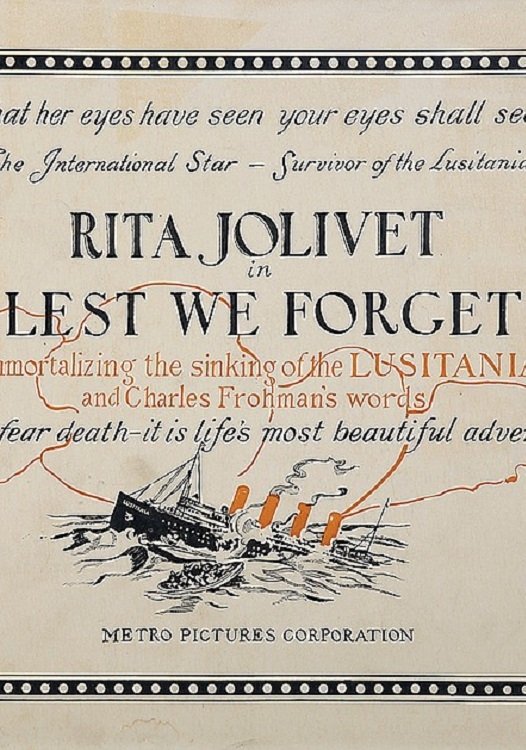 hat her eyes have seen your eyes shall see
he International Star – Survivor of the Lusitania
RITA JOLIVET
in
LEST WE FORGET
mmortalizing the sinking of the LUSITANIA
and Charles Frohman's words
fear death-it is life's most beautiful adve
LUSITANIA
METRO PICTURES CORPORATION